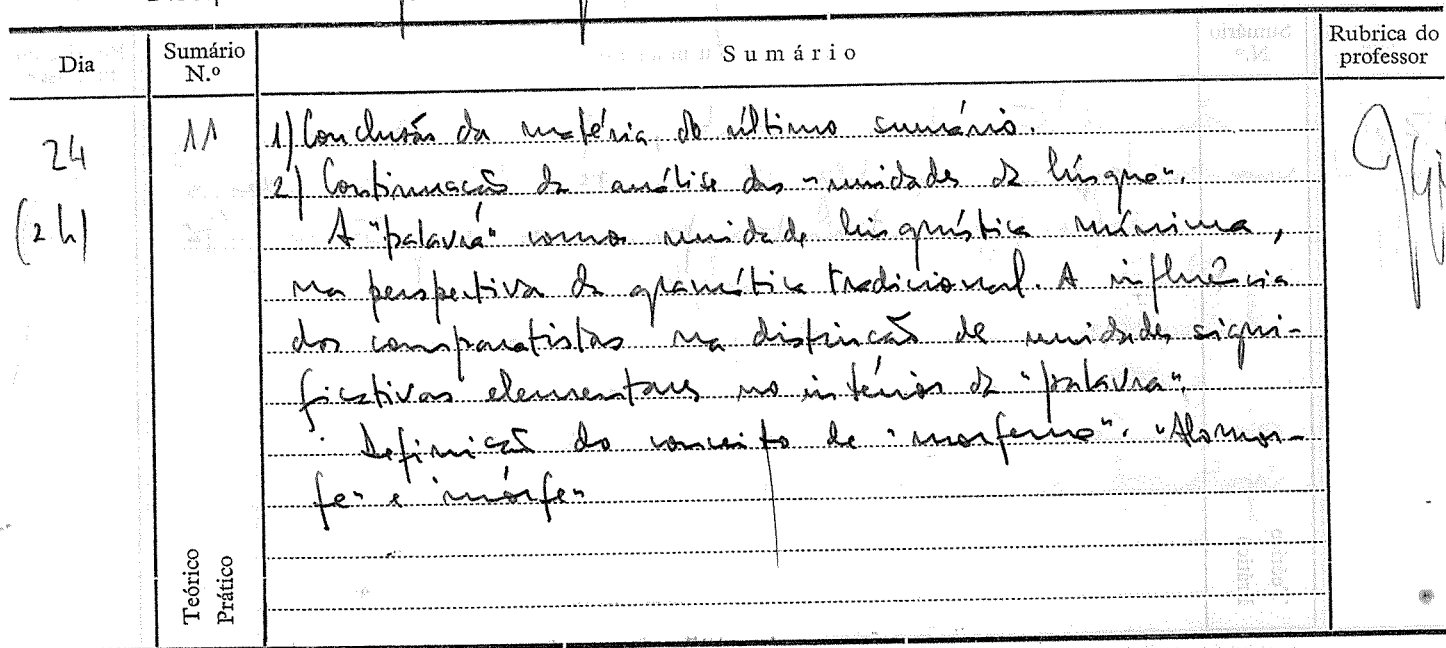 Dia
Sumário N.º
Sumário
Rubrica do professor
24
(2h)
11
1) Conclusão da matéria do último sumário.
2) Continuação da análise das "unidades da língua".
A "palavra" como unidade linguística mínima,
na perspectiva da gramática tradicional. A influência
dos comparatistas na distinção de unidades signi-
ficativas elementares no interior da "palavra".
Definição do conceito de "morfema". "Alomor-
fe" e "morfe"
Teórico
Prático